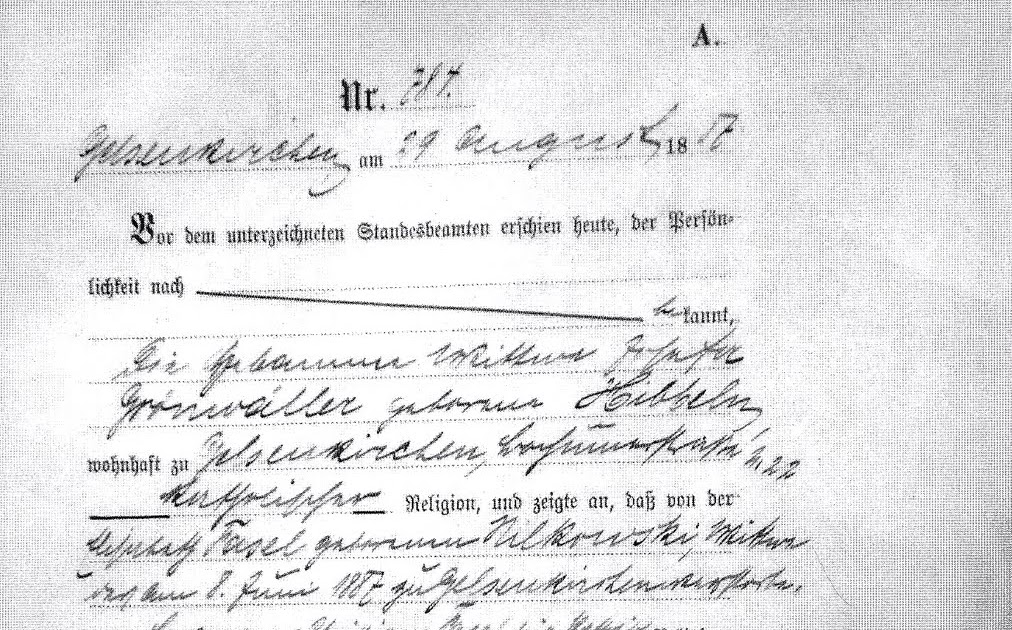 A.
Nr. 784.
Gelsenkirchen am 29 August 1887
Vor dem unterzeichneten Standesbeamten erschien heute, der Persön-
lichkeit nach
be kannt,
die Hebamme Wittwe
geborene Hibbeln
wohnhaft zu Gelsenkirchen, Bochumerstraße n. 22
katholischer Religion, und zeigte an, daß von der
Elisabeth Fasel geborenen Wittwe
des am 8. Juni 1887 zu Gelsenkirchen verstorbe-